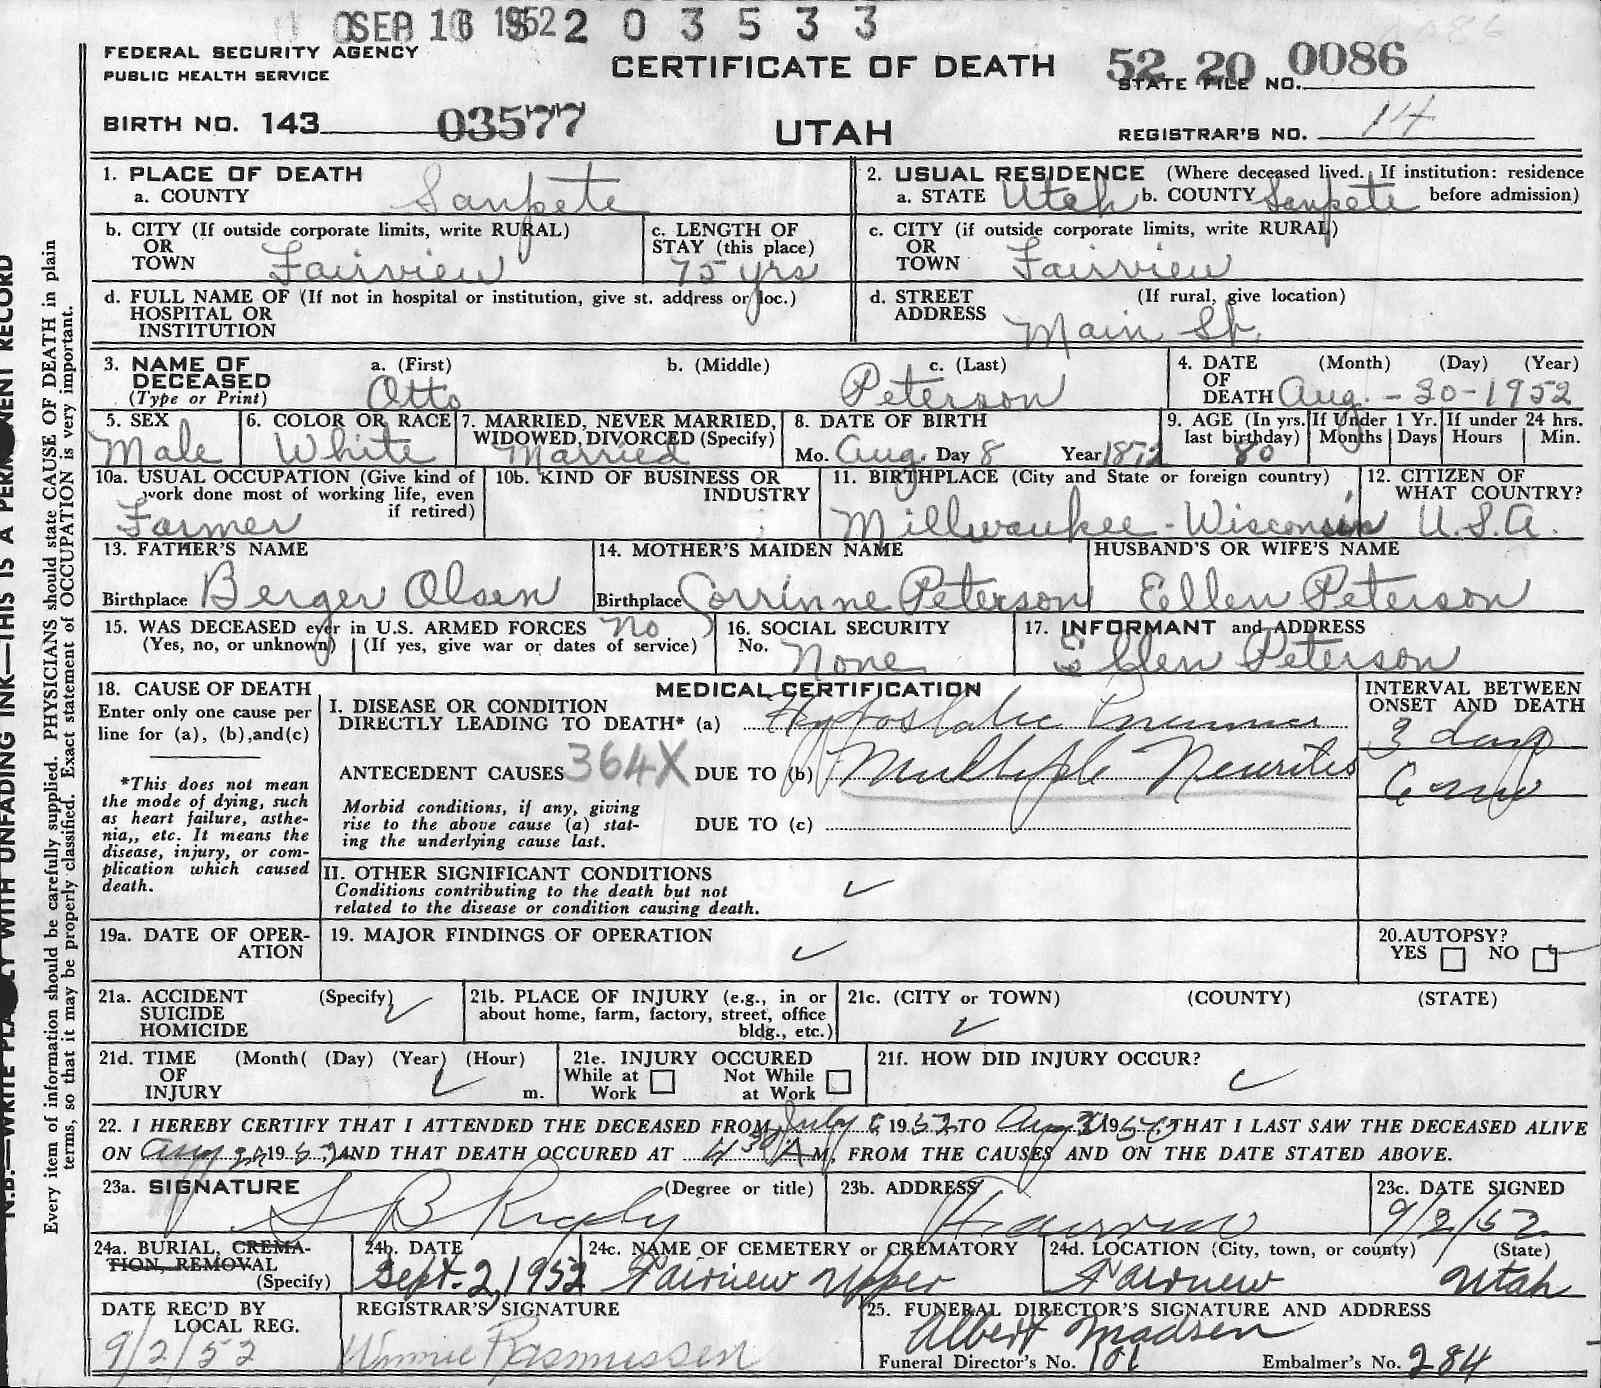 SEP 16 1952 2 0 3 5 3 3
FEDERAL SECURITY AGENCY
PUBLIC HEALTH SERVICE
CERTIFICATE OF DEATH
52 20 0086
STATE FILE NO.
BIRTH NO. 143 03577
UTAH
REGISTRAR'S NO. 14
1. PLACE OF DEATH
a. COUNTY Sanpete
2. USUAL RESIDENCE (Where deceased lived. If institution: residence
a. STATE Utah b. COUNTY Sanpete before admission)
b. CITY (If outside corporate limits, write RURAL)
OR
TOWN Fairview
c. LENGTH OF
STAY (this place)
75 yrs
c. CITY (if outside corporate limits, write RURAL)
OR
TOWN Fairview
d. FULL NAME OF (If not in hospital or institution, give st. address or loc.)
HOSPITAL OR
INSTITUTION
d. STREET (If rural, give location)
ADDRESS
Main St.
3. NAME OF a. (First) b. (Middle) c. (Last)
DECEASED
(Type or Print) Otto Peterson
4. DATE (Month) (Day) (Year)
OF
DEATH Aug. - 30 - 1952
5. SEX
Male
6. COLOR OR RACE
White
7. MARRIED, NEVER MARRIED,
WIDOWED, DIVORCED (Specify)
Married
8. DATE OF BIRTH
Mo. Aug. Day 8 Year 1872
9. AGE (In yrs. If Under 1 Yr. If under 24 hrs.
last birthday) Months Days Hours Min.
80
10a. USUAL OCCUPATION (Give kind of
work done most of working life, even
if retired)
Farmer
10b. KIND OF BUSINESS OR
INDUSTRY
11. BIRTHPLACE (City and State or foreign country)
Millwaukee - Wisconsin
12. CITIZEN OF
WHAT COUNTRY?
U.S.A.
13. FATHER'S NAME
Birthplace Berger Olsen
14. MOTHER'S MAIDEN NAME
Birthplace Corrinne Peterson
HUSBAND'S OR WIFE'S NAME
Ellen Peterson
15. WAS DECEASED ever in U.S. ARMED FORCES No
(Yes, no, or unknown) (If yes, give war or dates of service)
16. SOCIAL SECURITY
No. None
17. INFORMANT and ADDRESS
Ellen Peterson
18. CAUSE OF DEATH
Enter only one cause per
line for (a), (b), and (c)
*This does not mean
the mode of dying, such
as heart failure, asthe-
nia,, etc. It means the
disease, injury, or com-
plication which caused
death.
MEDICAL CERTIFICATION
I. DISEASE OR CONDITION
DIRECTLY LEADING TO DEATH* (a) Hypostatic
ANTECEDENT CAUSES 364X DUE TO (b) Multiple Neuritis
Morbid conditions, if any, giving
rise to the above cause (a) stat-
ing the underlying cause last.
DUE TO (c)
INTERVAL BETWEEN
ONSET AND DEATH
3 days
6
II. OTHER SIGNIFICANT CONDITIONS
Conditions contributing to the death but not
related to the disease or condition causing death.
19a. DATE OF OPER-
ATION
19. MAJOR FINDINGS OF OPERATION
20. AUTOPSY?
YES NO
21a. ACCIDENT (Specify)
SUICIDE
HOMICIDE
21b. PLACE OF INJURY (e.g., in or
about home, farm, factory, street, office
bldg., etc.)
21c. (CITY or TOWN) (COUNTY) (STATE)
21d. TIME (Month( (Day) (Year) (Hour)
OF
INJURY m.
21e. INJURY OCCURED
While at Not While
Work at Work
21f. HOW DID INJURY OCCUR?
22. I HEREBY CERTIFY THAT I ATTENDED THE DECEASED FROM July 1952 TO Aug 19 THAT I LAST SAW THE DECEASED ALIVE
ON Aug 19 AND THAT DEATH OCCURED AT 4 30 A M, FROM THE CAUSES AND ON THE DATE STATED ABOVE.
23a. SIGNATURE (Degree or title)
S B Rigby
23b. ADDRESS
Fairview
23c. DATE SIGNED
9/2/52
24a. BURIAL, CREMA-
TION, REMOVAL
(Specify)
24b. DATE
Sept. 2, 1952
24c. NAME OF CEMETERY or CREMATORY
Fairview Upper
24d. LOCATION (City, town, or county) (State)
Fairview Utah
DATE REC'D BY
LOCAL REG.
9/2/52
REGISTRAR'S SIGNATURE
Winnie Rasmussen
25. FUNERAL DIRECTOR'S SIGNATURE AND ADDRESS
Albert Madsen
Funeral Director's No. 101 Embalmer's No. 284
N.B.—WRITE PLAINLY WITH UNFADING INK—THIS IS A PERMANENT RECORD
Every item of information should be carefully supplied. PHYSICIANS should state CAUSE OF DEATH in plain
terms, so that it may be properly classified. Exact statement of OCCUPATION is very important.